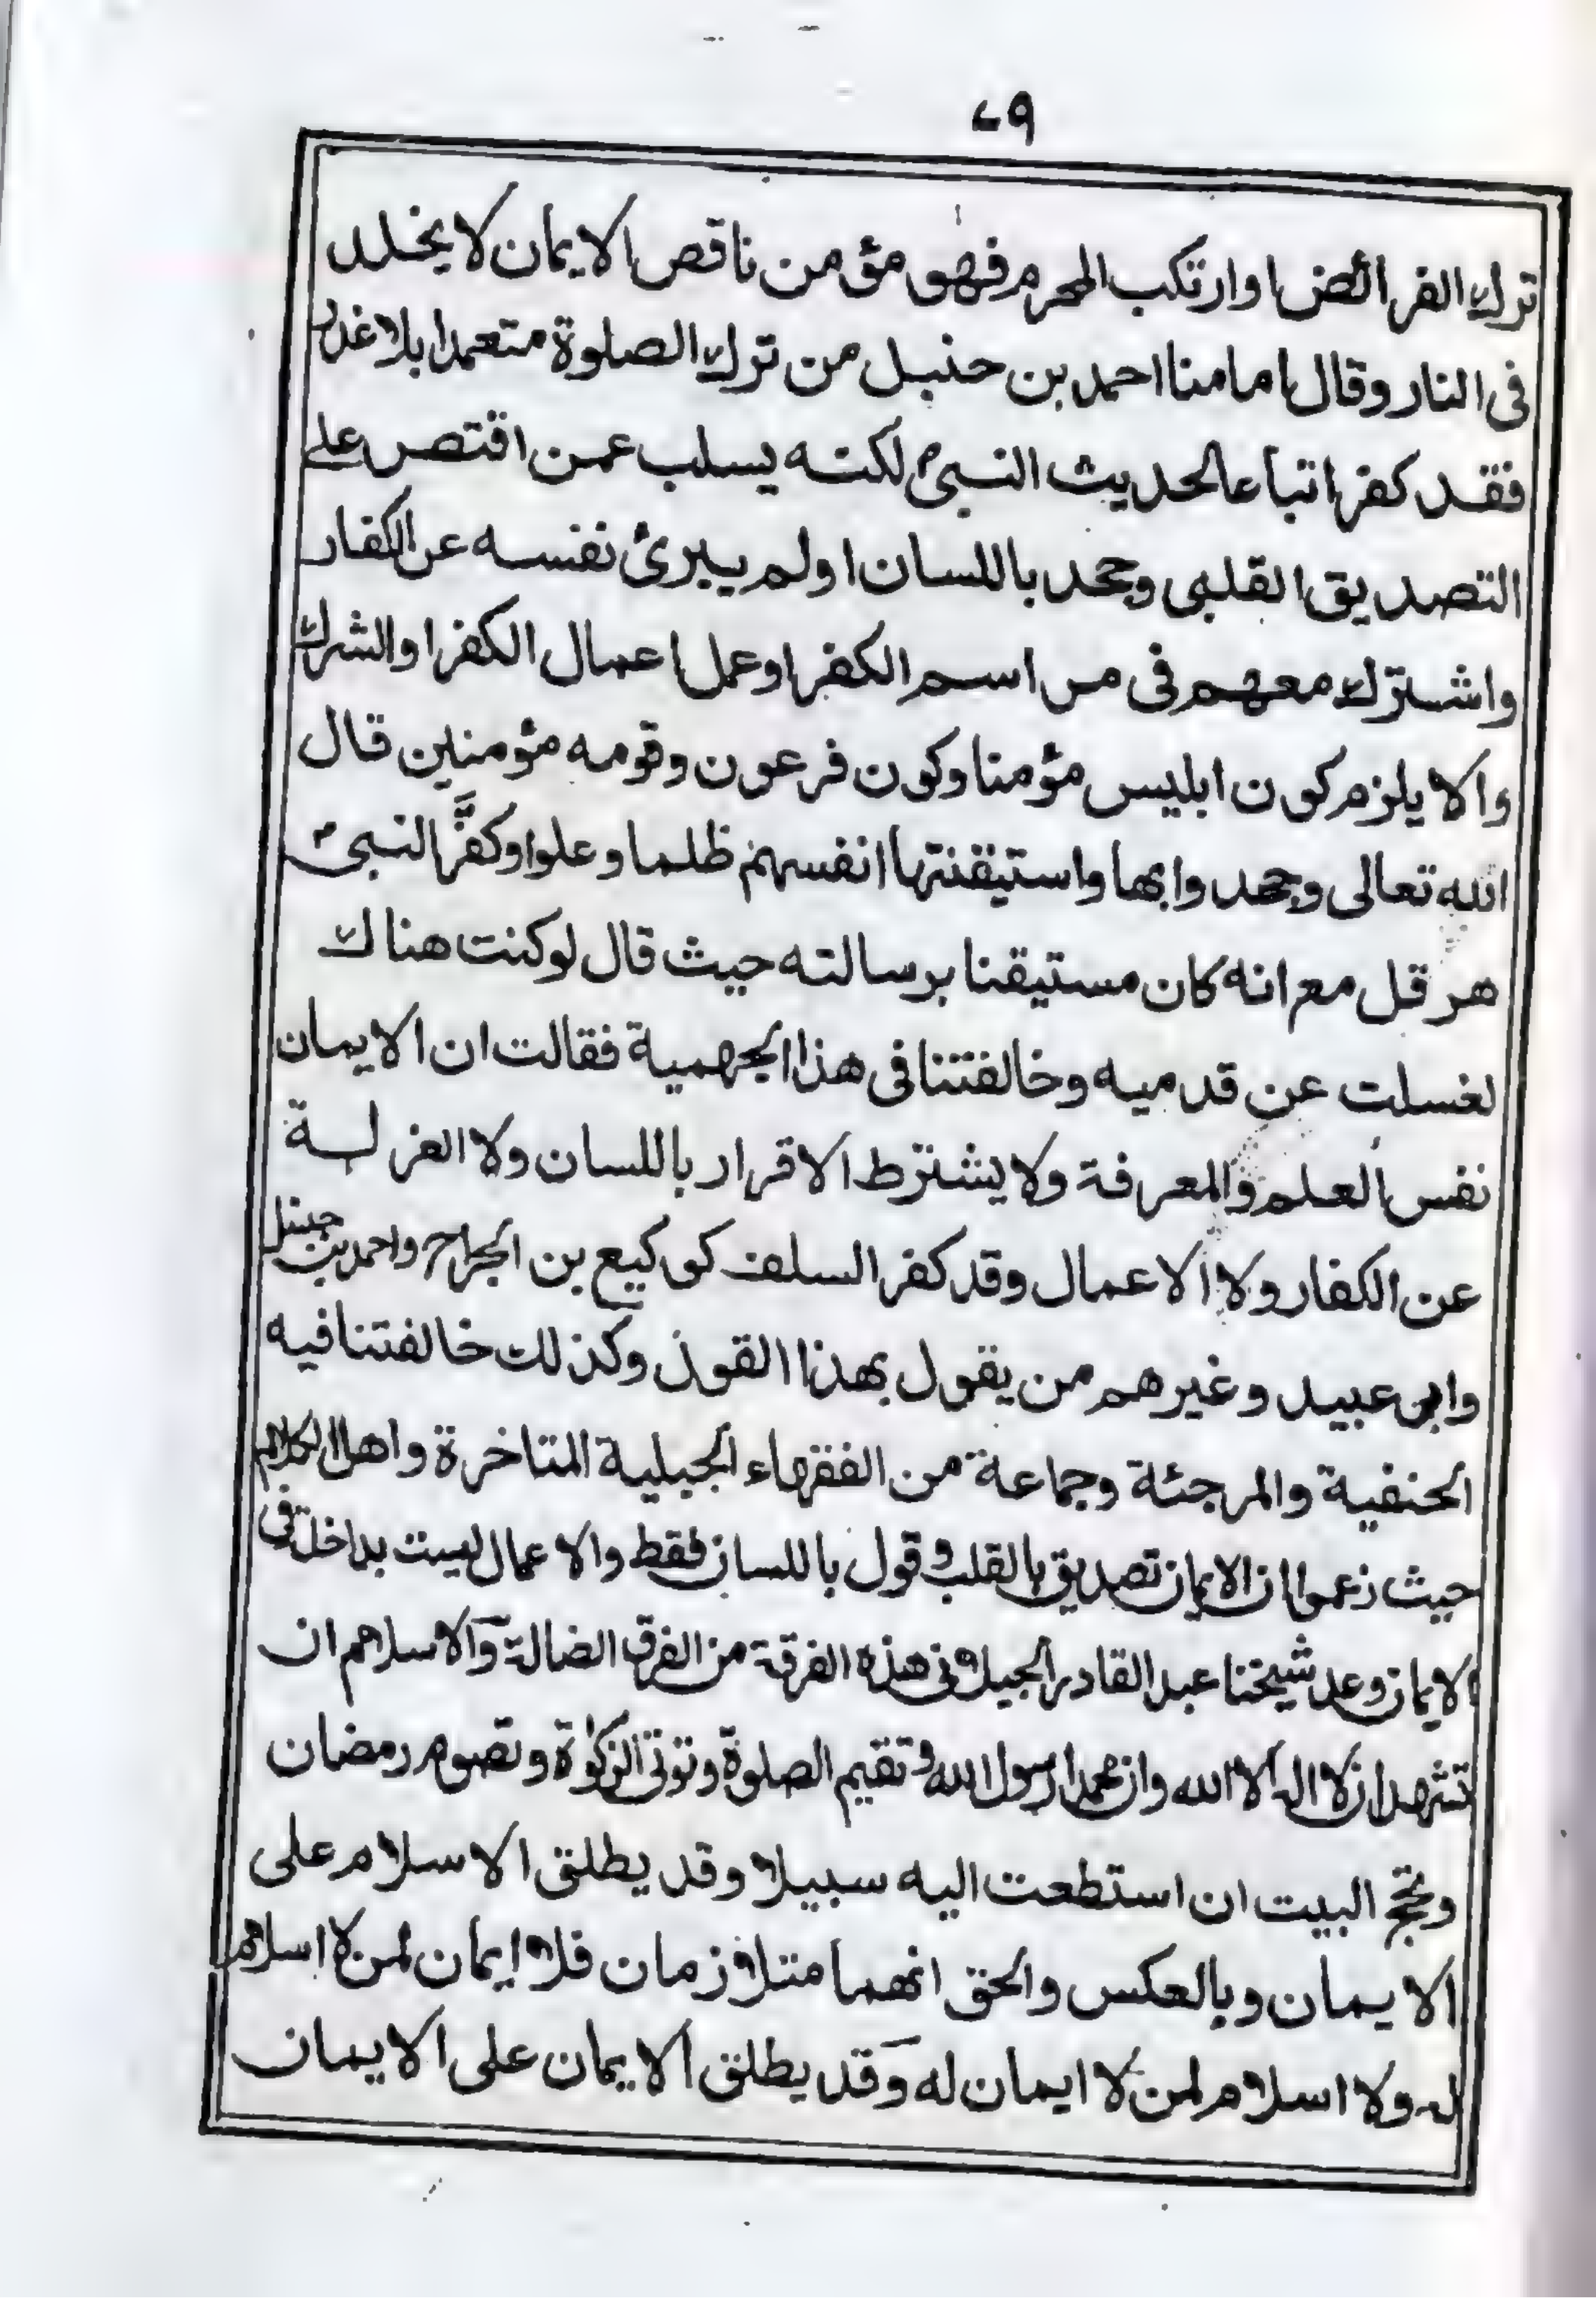 ٧٩
ترك الفرائض او ارتكب المحرم فهو مؤمن ناقص الايمان لا يخلد
فى النار وقال امامنا احمد بن حنبل من ترك الصلوة متعمدا بلا عذر
فقد كفر اتباعا لحديث النبىؐ لكنه يسلب عمن اقتصر على
التصديق القلبى وجحد باللسان او لم يبرئ نفسه عن الكفار
واشترك معهم فى مراسم الكفر او عمل اعمال الكفر او الشرك
والا يلزم كون ابليس مؤمنا وكون فرعون وقومه مؤمنين قال
الله تعالى وجحدوا بها واستيقنتها انفسهم ظلما وعلوا وكفَّر النبىؐ
هرقل مع انه كان مستيقنا برسالته حيث قال لو كنت هناك
لغسلت عن قدميه وخالفتنا فى هذا الجهمية فقالت ان الايمان
نفس العلم والمعرفة ولا يشترط الاقرار باللسان ولا العزلة
عن الكفار ولا الاعمال وقد كفر السلف كوكيع بن الجراح واحمد بن حنبل
وابى عبيد وغيرهم من يقول بهذا القول وكذلك خالفتنا فيه
الحنفية والمرجئة وجماعة من الفقهاء الجيلية المتاخرة واهل الكلام
حيث زعموا ان الايمان تصديق بالقلب وقول باللسان فقط والاعمال ليست بداخلة فى
الايمان وعد شيخنا عبد القادر الجيلانى هذه الفرقة من الفرق الضالة والاسلام ان
تشهد ان لا اله الا الله وان محمدا رسول الله وتقيم الصلوة وتوتى الزكوٰة وتصوم رمضان
وتحج البيت ان استطعت اليه سبيلا وقد يطلق الاسلام على
الايمان وبالعكس والحق انهما متلازمان فلا ايمان لمن لا اسلام
له ولا اسلام لمن لا ايمان له وقد يطلق الايمان على الايمان